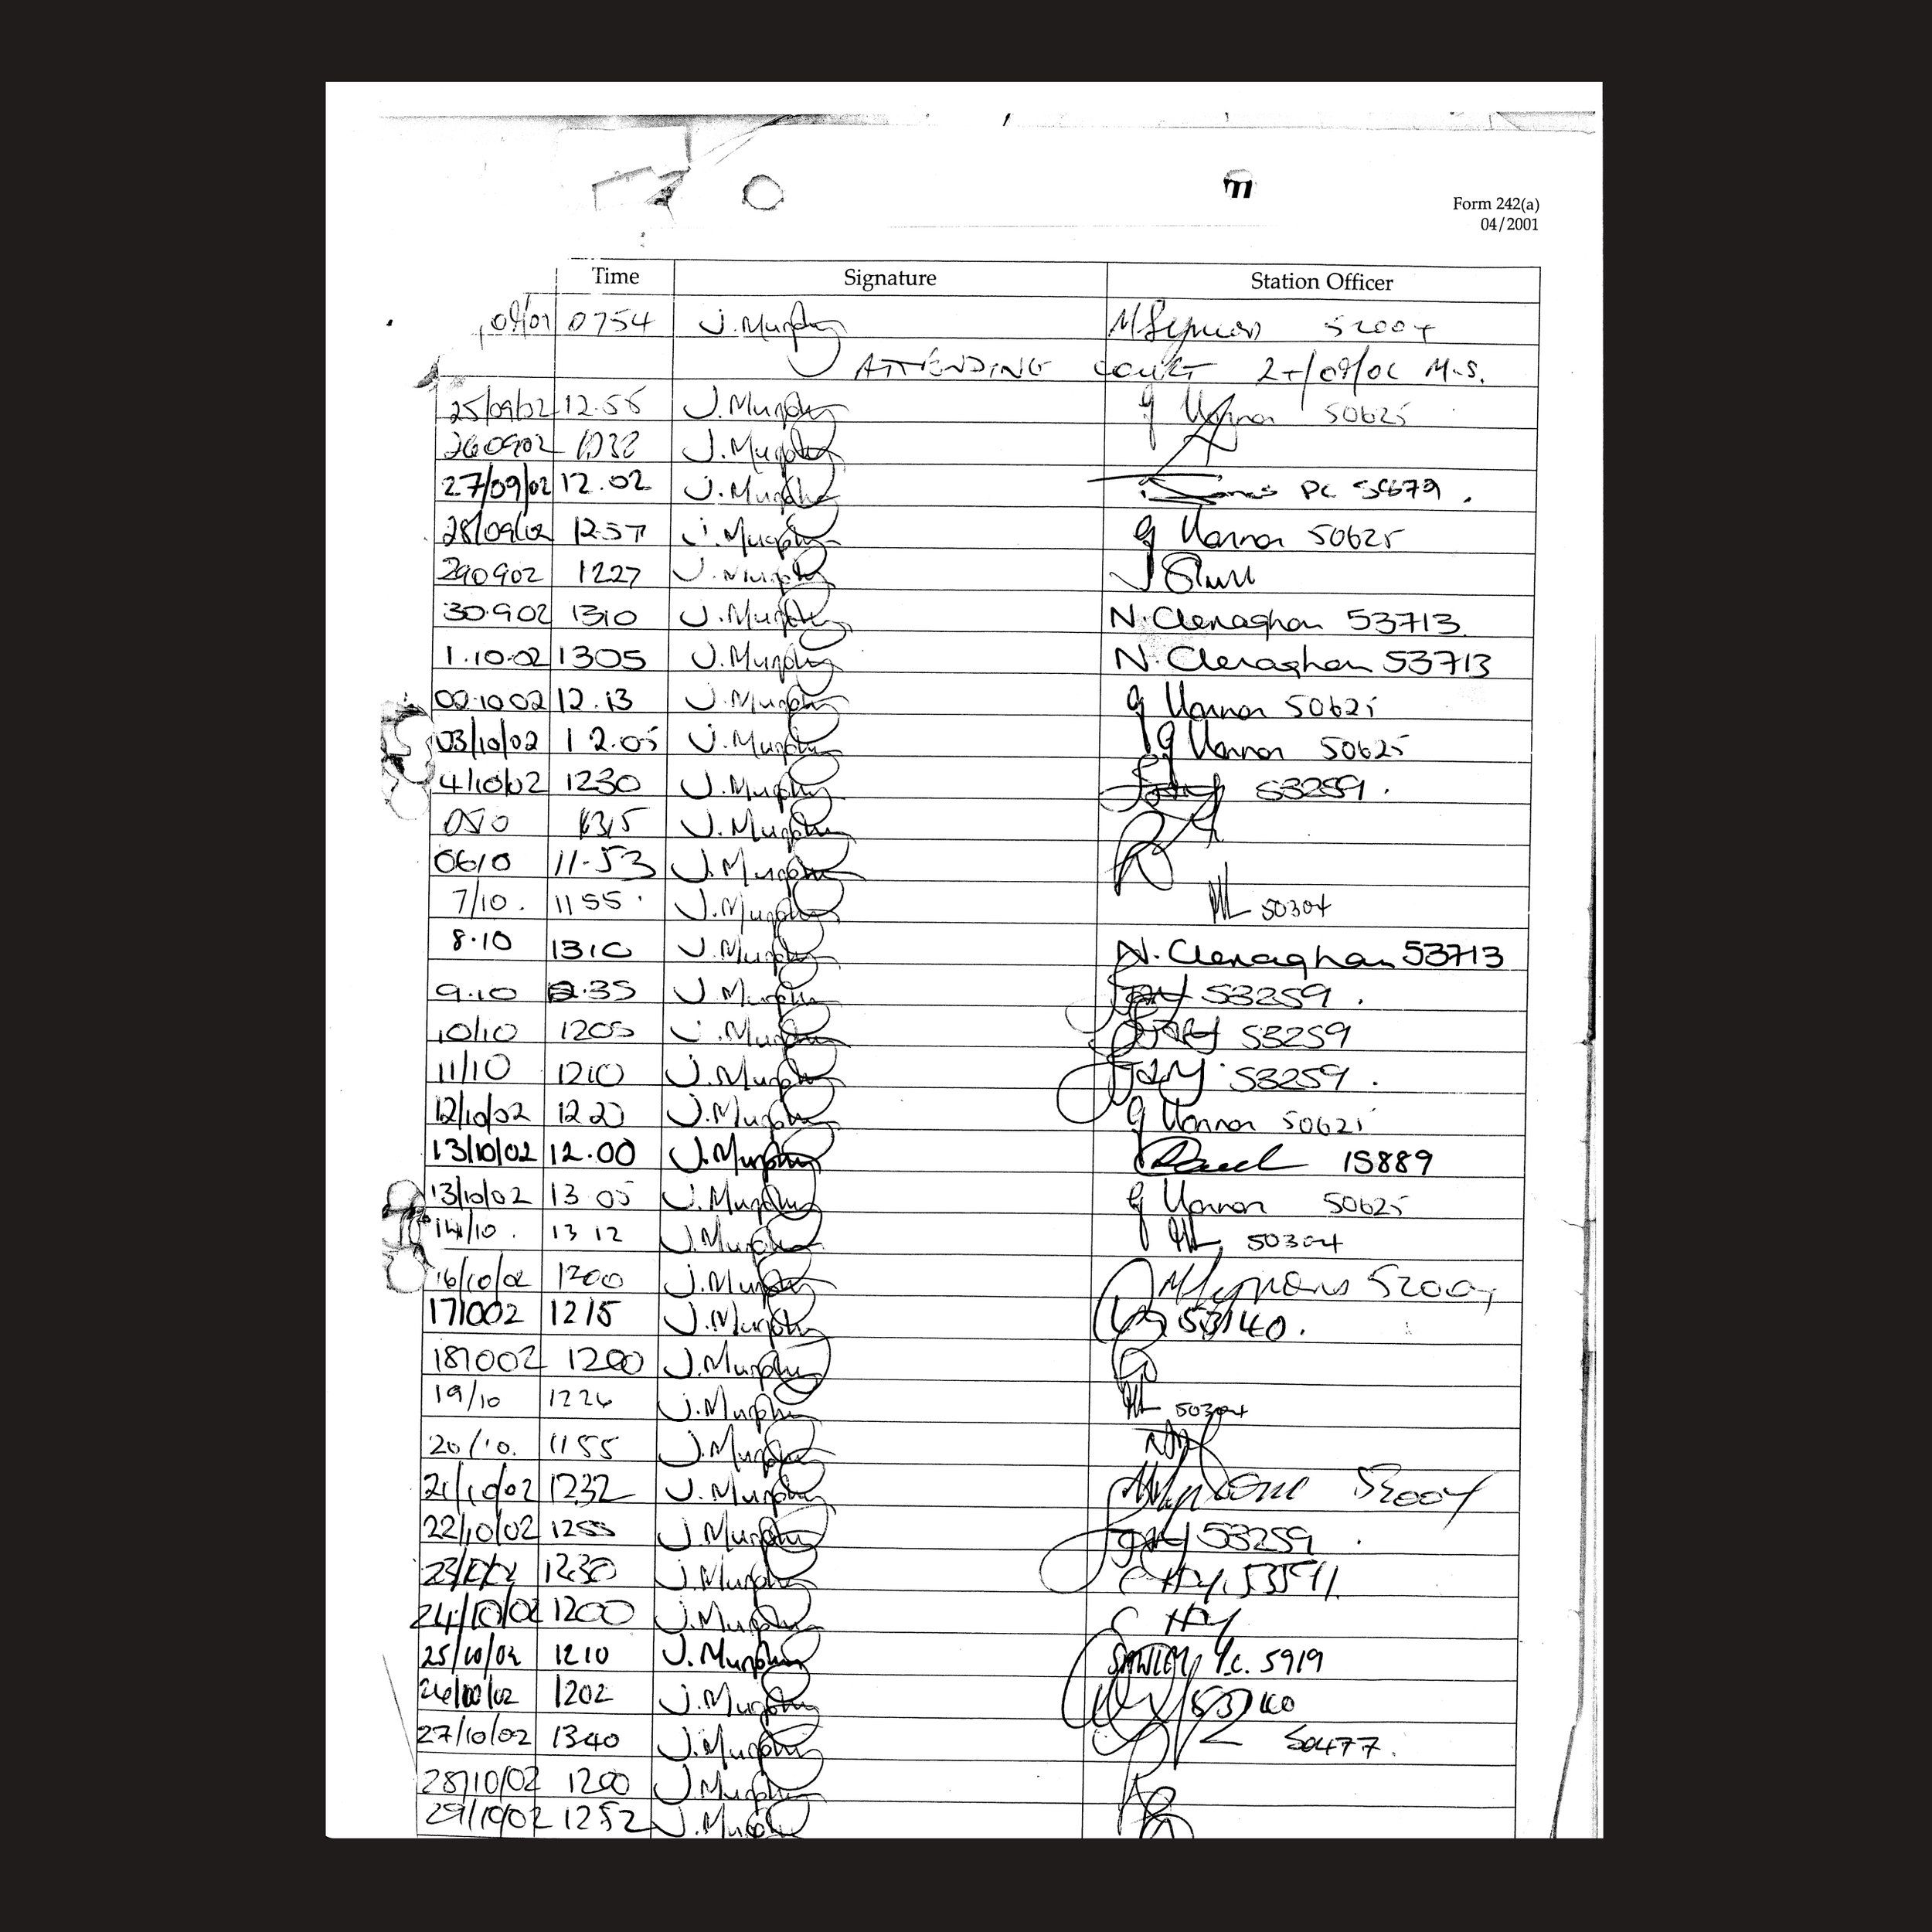 Form 242(a)
04/2001
Time Signature Station Officer
0754 J. Murphy 52004
ATTENDING COURT M.S.
25/09/02 12.55 J. Murphy 50625
260902 J. Murphy
27/09/02 12.02 J. Murphy PC
28/09/02 12.57 J. Murphy 50625
290902 1227 J. Murphy
30.902 1310 J. Murphy N. Clenaghan 53713
1.10.02 1305 J. Murphy N. Clenaghan 53713
02.10 02 12.13 J. Murphy 50625
03/10/02 12.05 J. Murphy 50625
4/10/02 1230 J. Murphy 53259.
0510 1315 J. Murphy
0610 11.53 J. Murphy
7/10. 1155 J. Murphy 50304
8.10 1310 J. Murphy N. Clenaghan 53713
9.10 J. Murphy 53259.
10/10 1205 J. Murphy 53259
11/10 1210 J. Murphy 53259.
12/10/02 1220 J. Murphy 50625
13/10/02 12.00 J. Murphy 15889
13/10/02 13 05 J. Murphy 50625
14/10. 1312 J. Murphy 50304
16/10/02 1200 J. Murphy M Symons 52004
171002 1215 J. Murphy 53140.
181002 1200 J. Murphy
19/10 1226 J. Murphy 50304
20/10. 1155 J. Murphy
21/10/02 1232 J. Murphy 52004
22/10/02 1255 J. Murphy 53259.
23/10/02 1230 J. Murphy C Hay. 53591.
24/10/02 1200 J. Murphy C Hay
25/10/02 1210 J. Murphy 5919
26/10/02 1202 J. Murphy 53140
27/10/02 1340 J. Murphy 50477.
28/10/02 1200 J. Murphy
29/10/02 1252 J. Murphy